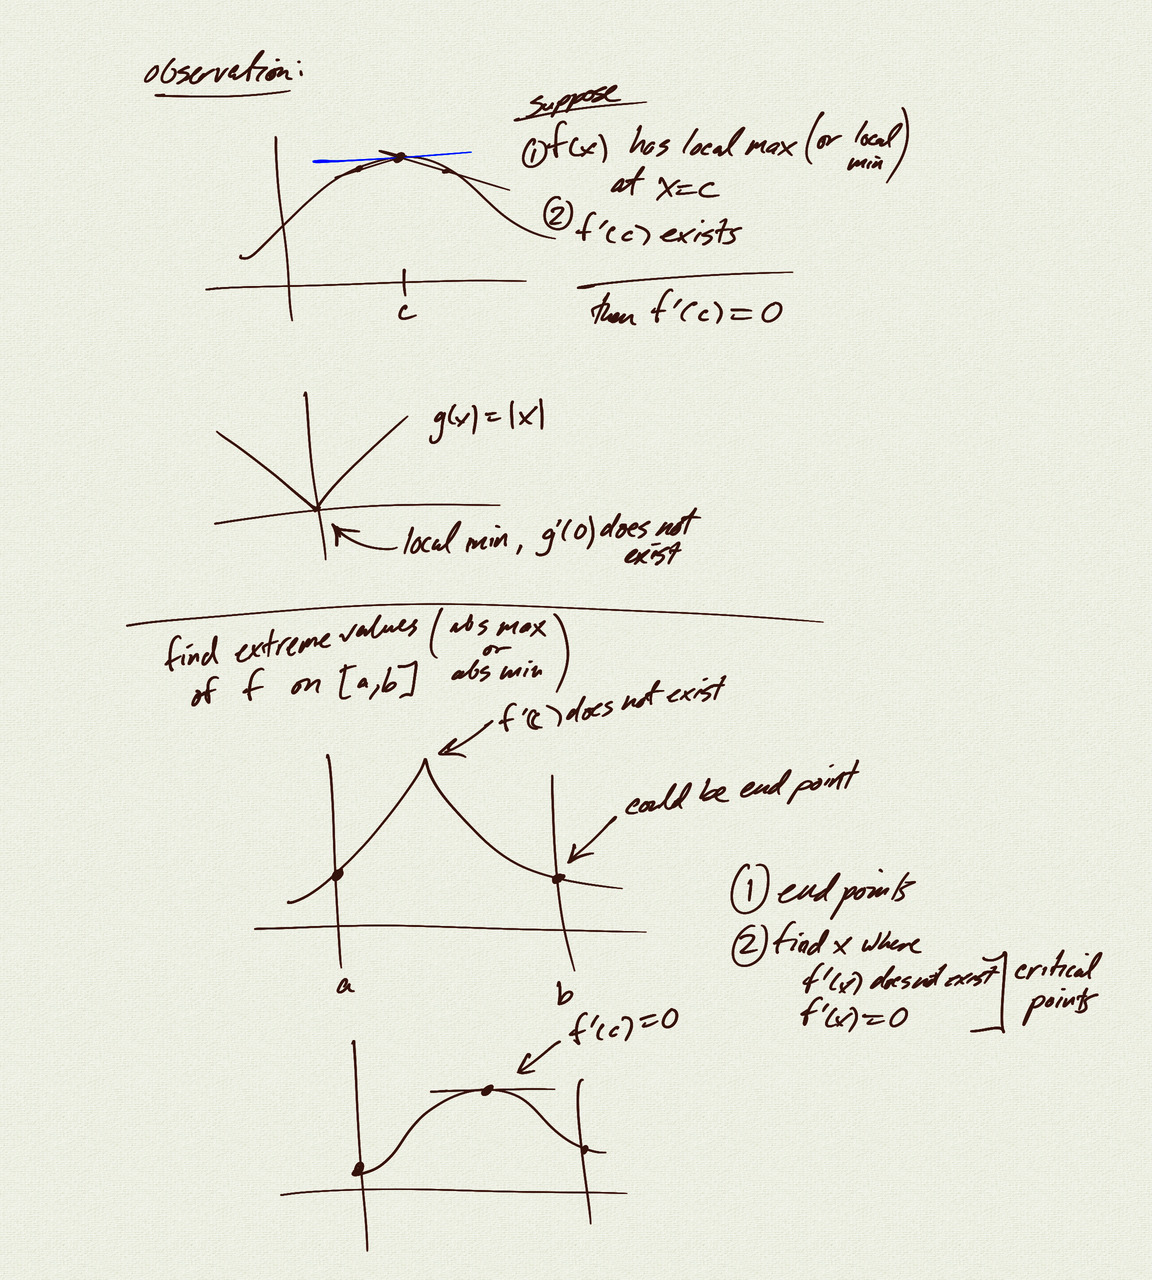 observation:
suppose
① f(x) has local max (or local min)
at x=c
② f'(c) exists
then f'(c) = 0
c
g(x) = |x|
local min, g'(0) does not
exist
find extreme values (abs max
or
of f on [a,b] abs min)
f'(c) does not exist
could be end point
① end points
② find x where
f'(x) does not exist ] critical
f'(x) = 0 points
a
b
f'(c) = 0